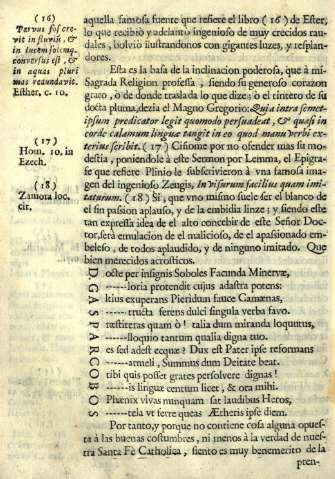 (16)
Parvus fos cre-
vit in fluviū, &
in lucem solemq.
conversus est, &
in aquas pluri
mas redundavit.
Esther, c. 10.
(17)
Hom. 10. in
Ezech.
(18)
Zamora loc.
cit.
aquella famosa fuente que refiere el libro (16) de Ester,
lo que recibiò y adelanto ingenioso de muy crecidos rau-
dales, bolviò ilustrandonos con gigantes luzes, y respian-
dores.
Esta es la basa de la inclinacion poderosa, que à mi-
Sagrada Religion professa, siendo su generoso corazon
grato, ò de donde traslada lo que dize; ò el tintero de su
docta pluma, dezia el Magno Gregorio: Quia intra semet-
ipsum predicator legit quomodo persuadeat, & quasi in
corde calamum linguæ tangit in eo quod manu verbi ex-
terius scribit. (17) Ciñome por no ofender mas su mo-
destia, poniendole à este Sermon por Lemma, el Epigra-
fe que refiere Plinio le subscrivieron à vna famosa ima-
gen del ingenioso Zeugis, In visurum facilius quam imi-
taturum. (18) Si, que vno mismo suele ser el blanco de
el sin passion aplauso, y de la embidia linze; y siendo este
tan expressa idea de el alto concebir de este Señor Doc-
tor, serà emulacion de el malicioso, de el apasionado em-
beleso, de todos aplaudido, y de ninguno imitado. Que
bien merecidos acrosticos.
D octe per insignis Soboles Facunda Minervæ,
G ------loria protendit cujus adastra potens:
A kius exuperans Pieridum fauce Camænas,
S ------tructa serens dulci singula verba favo.
P ræstiteras quam ò! talia dum miranda loquutus,
A ------lloquio tantum qualia digna tuo.
R es sed adest ecquæ? Dux est Pater ipse reformans
C ------armeli, Summus dum Deitate beat.
O tibi quis posset grates persolvere dignas!
B ------is linguæ centum licet, & ora mihi.
O Phœnix vivas nunquam sat laudibus Heros,
S ------tela vt ferre queas Ætheris ipse diem.
Por tanto, y porque no contiene cosa alguna opues-
ta à las buenas costumbres, ni menos à la verdad de nues-
tra Santa Fè Catholica, siento es muy benemerito de la
pren-